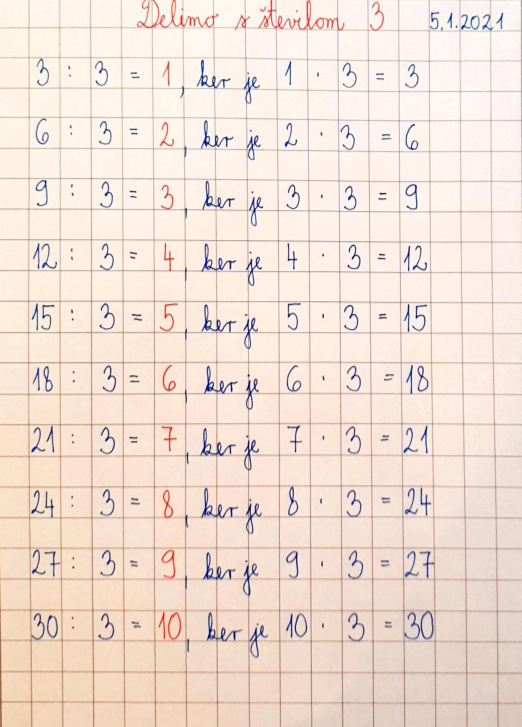 Delimo s številom 3 5.1.2021
3 : 3 = 1, ker je 1 · 3 = 3
6 : 3 = 2, ker je 2 · 3 = 6
9 : 3 = 3, ker je 3 · 3 = 9
12 : 3 = 4, ker je 4 · 3 = 12
15 : 3 = 5, ker je 5 · 3 = 15
18 : 3 = 6, ker je 6 · 3 = 18
21 : 3 = 7, ker je 7 · 3 = 21
24 : 3 = 8, ker je 8 · 3 = 24
27 : 3 = 9, ker je 9 · 3 = 27
30 : 3 = 10, ker je 10 · 3 = 30